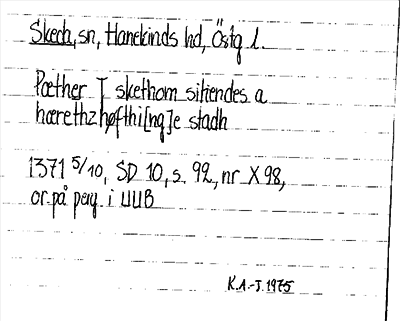 Skeda, sn, Hanekinds hd, Östg l.
Pæther I skethom sitiendes a
hærethzhøfthi[ng]e stadh
1371 5/10, SD 10, s. 92, nr X 98,
or på perg. i UUB
K.A.-J. 1975